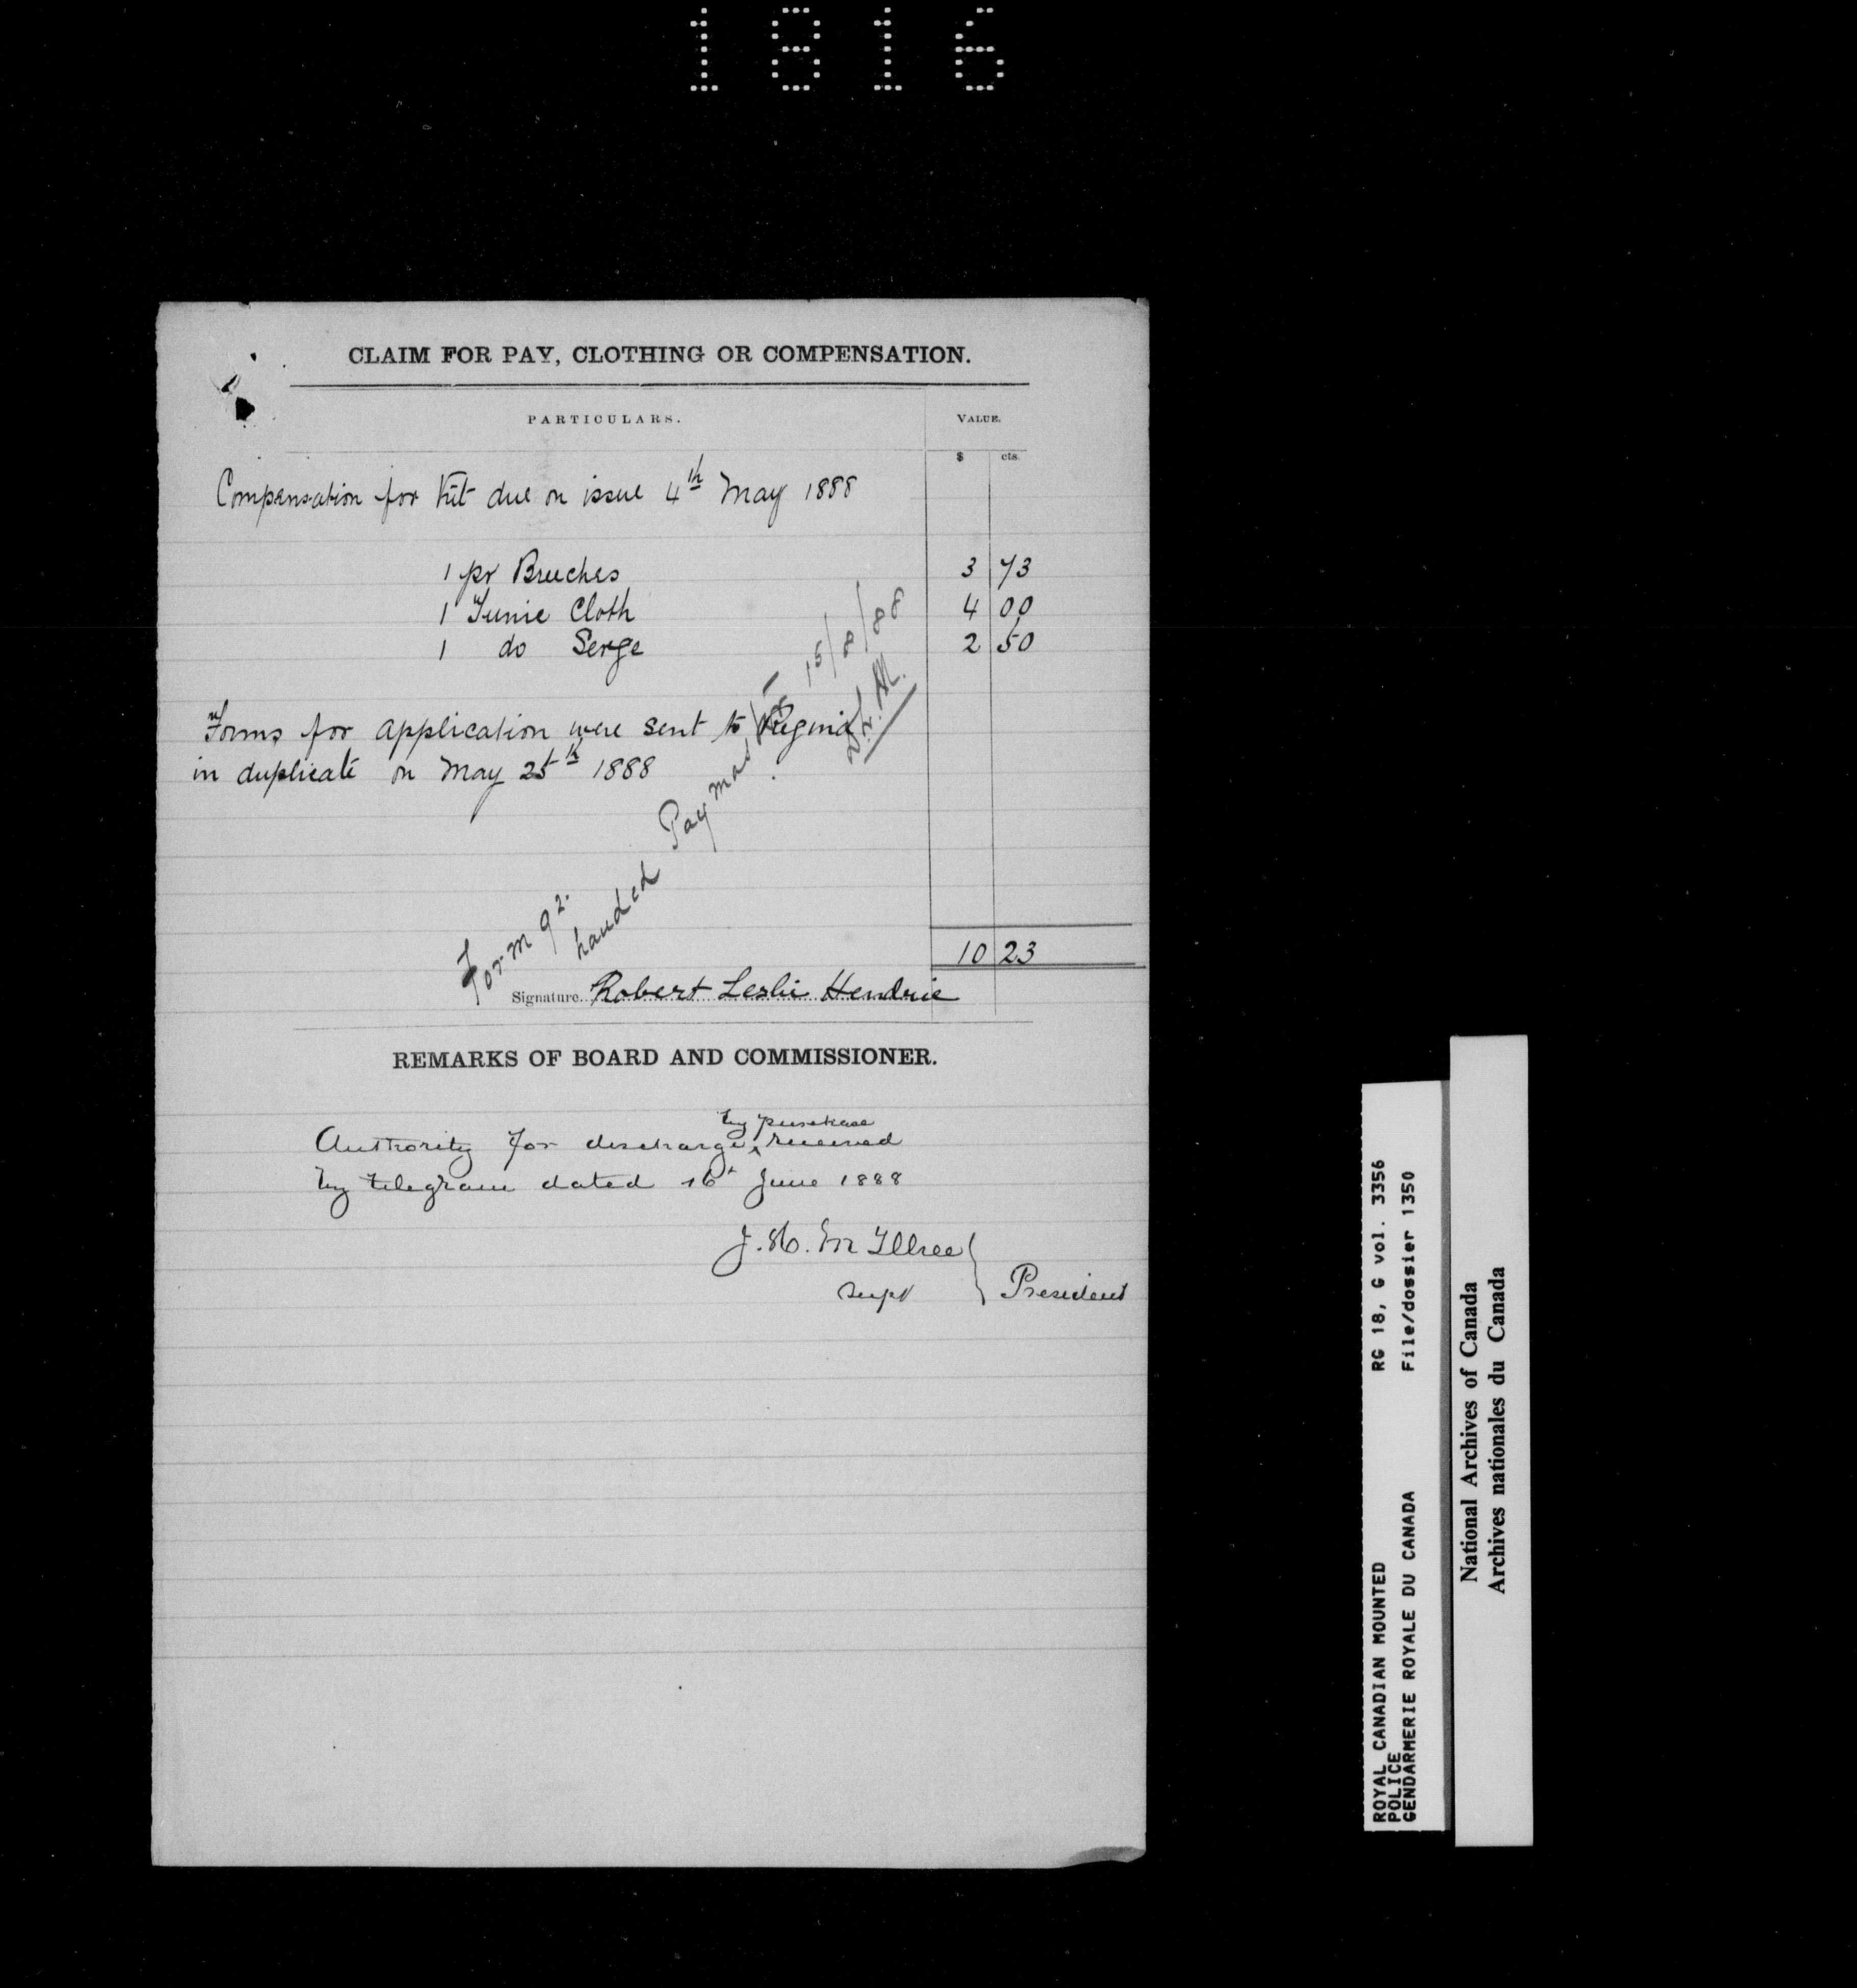 1816
CLAIM FOR PAY, CLOTHING OR COMPENSATION.
PARTICULARS.
VALUE.
$ cts.
Compensation for Kit due on issue 4th May 1888
1 pr Breeches 3 73
1 Tunic Cloth 4 00
1 do Serge 2 50
Forms for application were sent to Regina
in duplicate on May 25th 1888
Form 92.
handed Paymaster 15/8/88
10 23
Signature Robert Leslie Hendrie
REMARKS OF BOARD AND COMMISSIONER.
by purchase
Authority for discharge ^ received
by telegram dated 16th June 1888
J. H. McIllree
Supt } President
ROYAL CANADIAN MOUNTED RG 18, G vol. 3356
POLICE
GENDARMERIE ROYALE DU CANADA File/dossier 1350
National Archives of Canada
Archives nationales du Canada